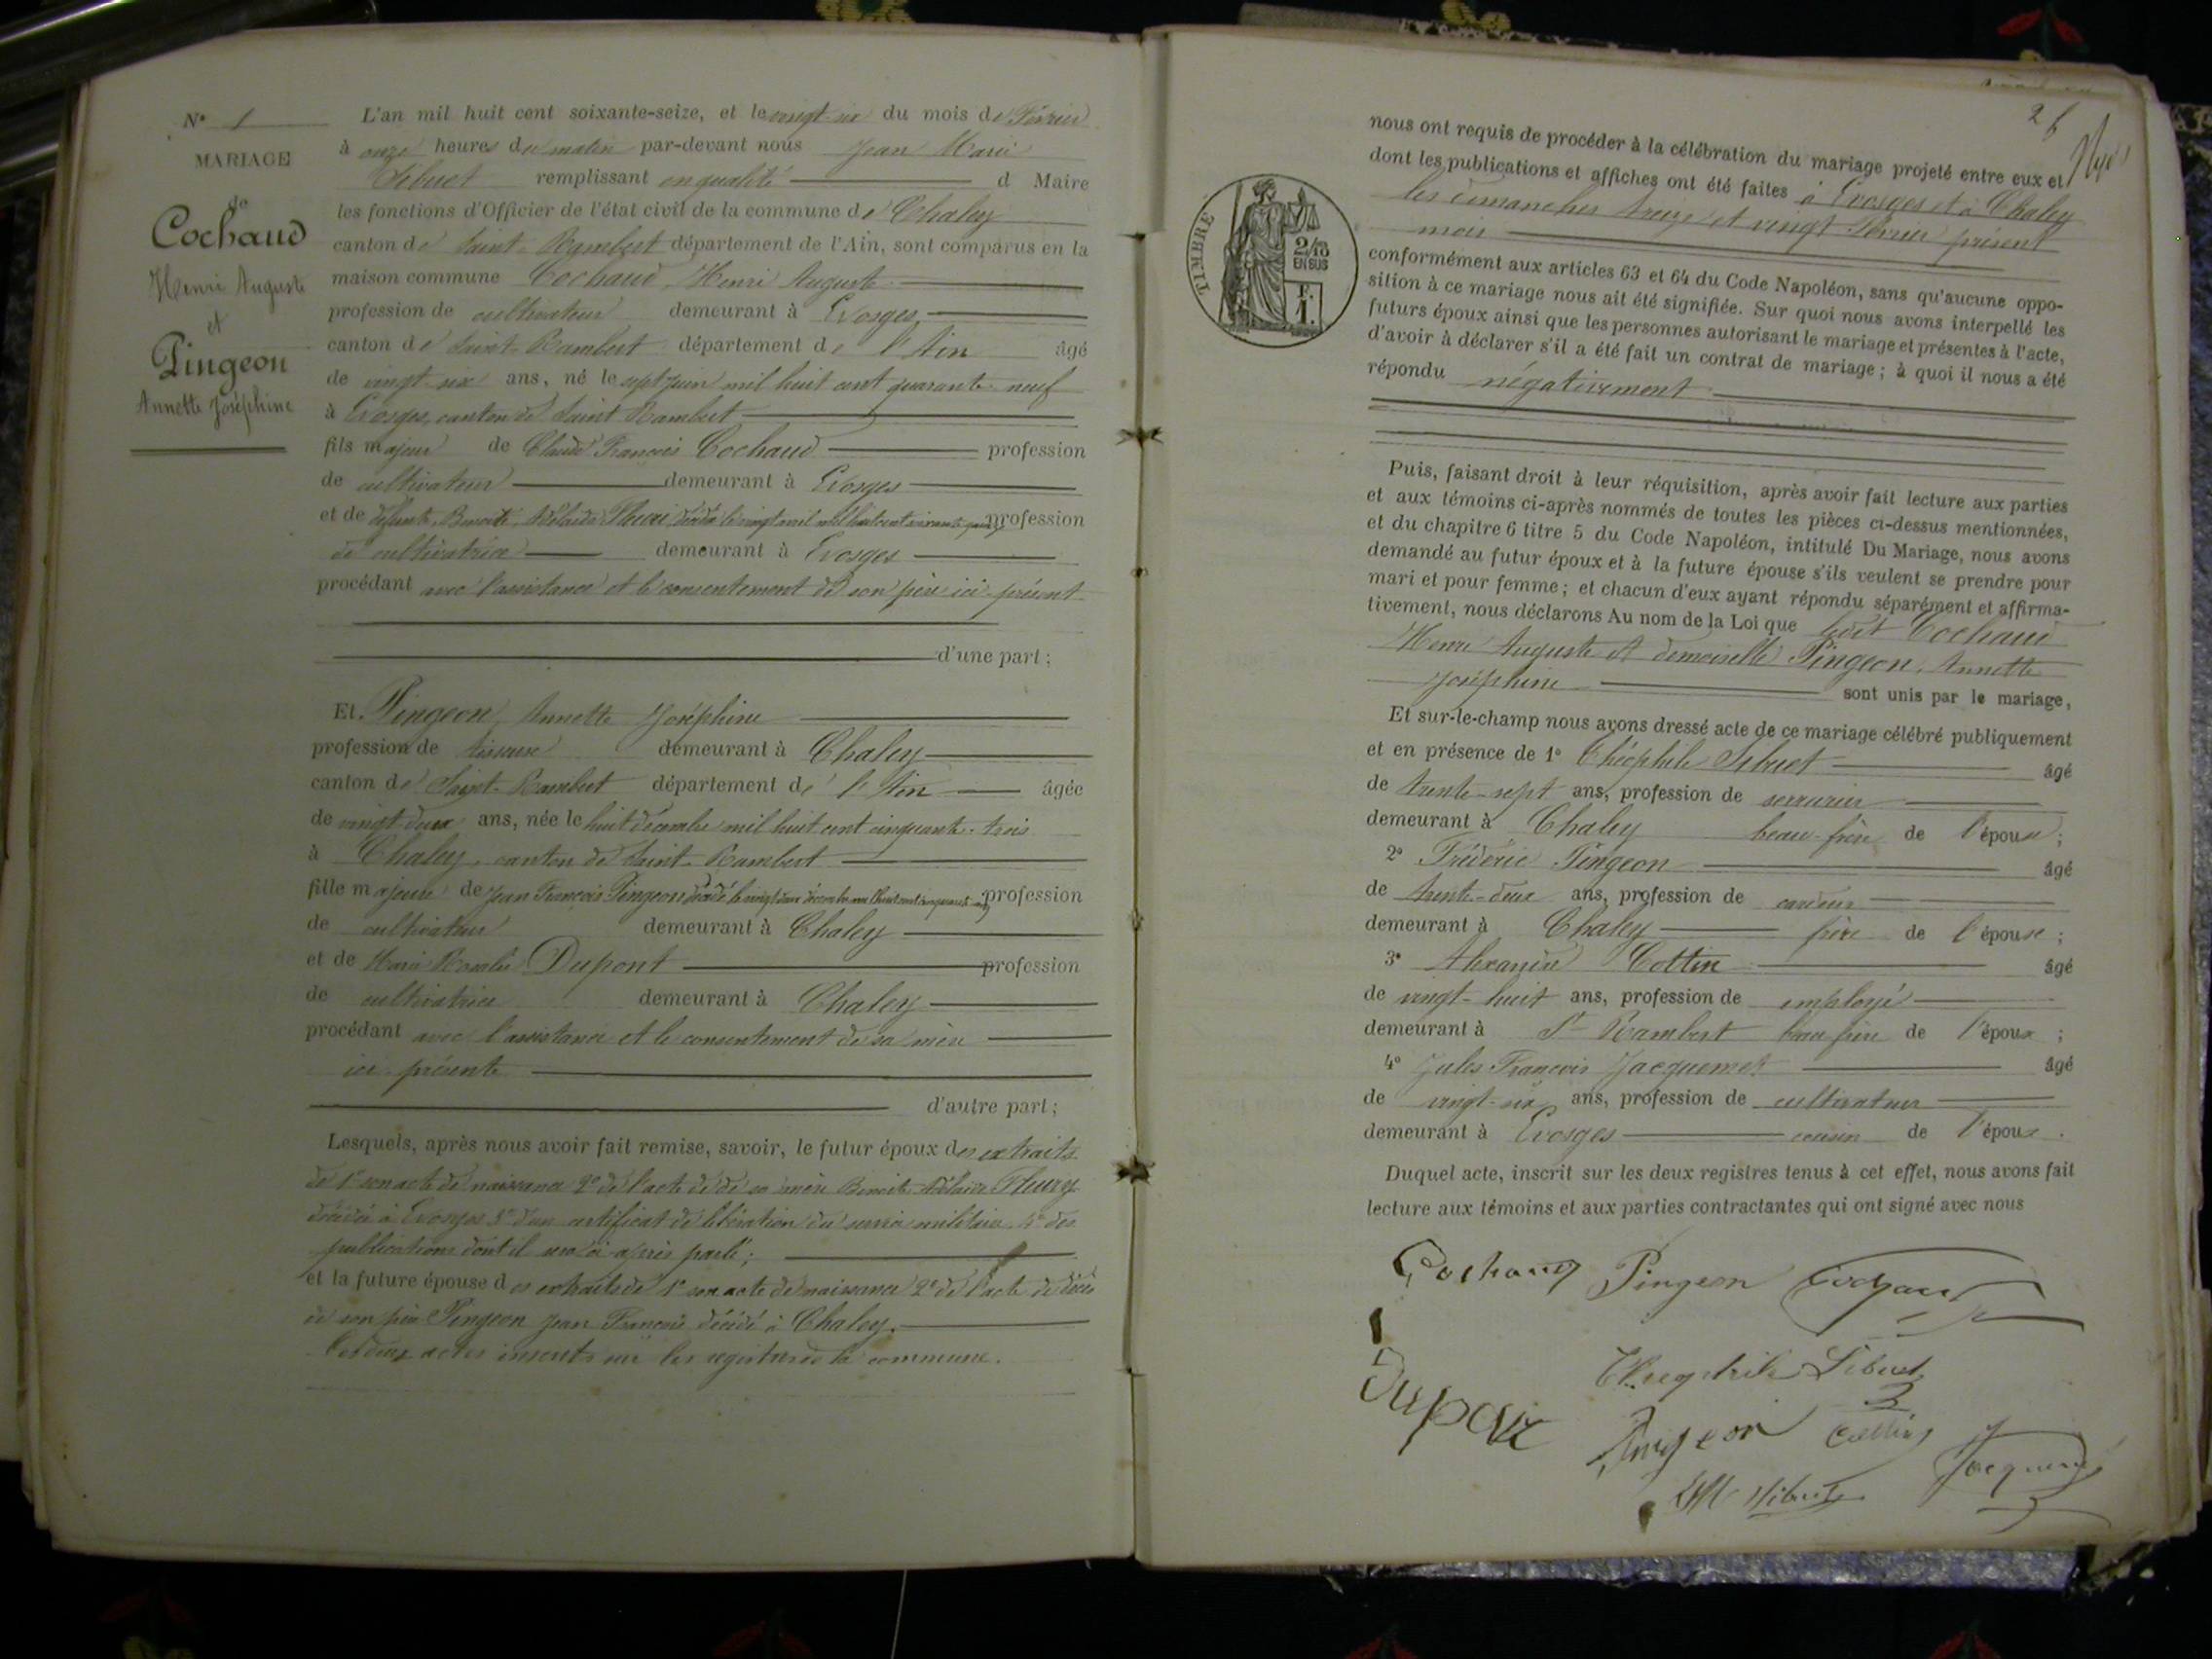 N° 1
MARIAGE
de
Cochaud
Henri Auguste
et
Pingeon
Annette Joséphine
L'an mil huit cent soixante-seize, et le vingt-six du mois de Février
à onze heures du matin par-devant nous Jean Marie
Sibuet remplissant en qualité d Maire
les fonctions d'Officier de l'état civil de la commune de Chaley
canton de Saint-Rambert département de l'Ain, sont comparus en la
maison commune Cochaud, Henri Auguste
profession de cultivateur demeurant à Evosges
canton de Saint-Rambert département de l'Ain âgé
de vingt-six ans, né le sept juin mil huit cent quarante-neuf
à Evosges, canton de Saint Rambert
fils majeur de Claude François Cochaud profession
de cultivateur demeurant à Evosges
et de défunte Benoite Adélaïde Fleuri décédée le vingt mil huit cent soixante profession
de cultivatrice demeurant à Evosges
procédant avec l'assistance et le consentement de son père ici présent
d'une part ;
Et Pingeon, Annette Joséphine
profession de tisseuse demeurant à Chaley
canton de Saint-Rambert département de l'Ain âgée
de vingt-deux ans, née le huit décembre mil huit cent cinquante-trois
à Chaley, canton de Saint-Rambert
fille majeure de Jean François Pingeon décédé le vingt deux décembre mil huit cent cinquante profession
de cultivateur demeurant à Chaley
et de Marie Rosalie Dupont profession
de cultivatrice demeurant à Chaley
procédant avec l'assistance et le consentement de sa mère
ici présente
d'autre part ;
Lesquels, après nous avoir fait remise, savoir, le futur époux des extraits
de 1° son acte de naissance 2° de l'acte de de sa mère Benoite Adélaïde Fleury
décédée à Evosges 3° d'un certificat de libération du service militaire 4° des
publications dont il sera ci-après parlé ;
et la future épouse des extraits de 1° son acte de naissance 2° de l'acte de décès
de son père Pingeon Jean François décédé à Chaley.
Ces deux actes inscrits sur les registres de la commune.
26
nous ont requis de procéder à la célébration du mariage projeté entre eux et
dont les publications et affiches ont été faites à Evosges et à Chaley
les dimanches treize et vingt Février présent
mois
TIMBRE
2/10
EN SUS
F.
1.
conformément aux articles 63 et 64 du Code Napoléon, sans qu'aucune oppo-
sition à ce mariage nous ait été signifiée. Sur quoi nous avons interpellé les
futurs époux ainsi que les personnes autorisant le mariage et présentes à l'acte,
d'avoir à déclarer s'il a été fait un contrat de mariage ; à quoi il nous a été
répondu négativement
Puis, faisant droit à leur réquisition, après avoir fait lecture aux parties
et aux témoins ci-après nommés de toutes les pièces ci-dessus mentionnées,
et du chapitre 6 titre 5 du Code Napoléon, intitulé Du Mariage, nous avons
demandé au futur époux et à la future épouse s'ils veulent se prendre pour
mari et pour femme ; et chacun d'eux ayant répondu séparément et affirma-
tivement, nous déclarons Au nom de la Loi que ledit Cochaud
Henri Auguste et demoiselle Pingeon, Annette
Joséphine sont unis par le mariage,
Et sur-le-champ nous avons dressé acte de ce mariage célébré publiquement
et en présence de 1° Théophile Sibuet âgé
de trente-sept ans, profession de serrurier
demeurant à Chaley beau-frère de l'épouse ;
2° Frédéric Pingeon âgé
de trente-deux ans, profession de cardeur
demeurant à Chaley frère de l'épouse ;
3° Cottin âgé
de vingt-huit ans, profession de employé
demeurant à St Rambert beau frère de l'époux ;
4° Jules François Jacquemet âgé
de vingt-six ans, profession de cultivateur
demeurant à Evosges cousin de l'époux.
Duquel acte, inscrit sur les deux registres tenus à cet effet, nous avons fait
lecture aux témoins et aux parties contractantes qui ont signé avec nous
Cochaud Pingeon Cochaud
Théophile Sibuet
Dupont
Pingeon Cottin
JM Sibuet Jacquemet